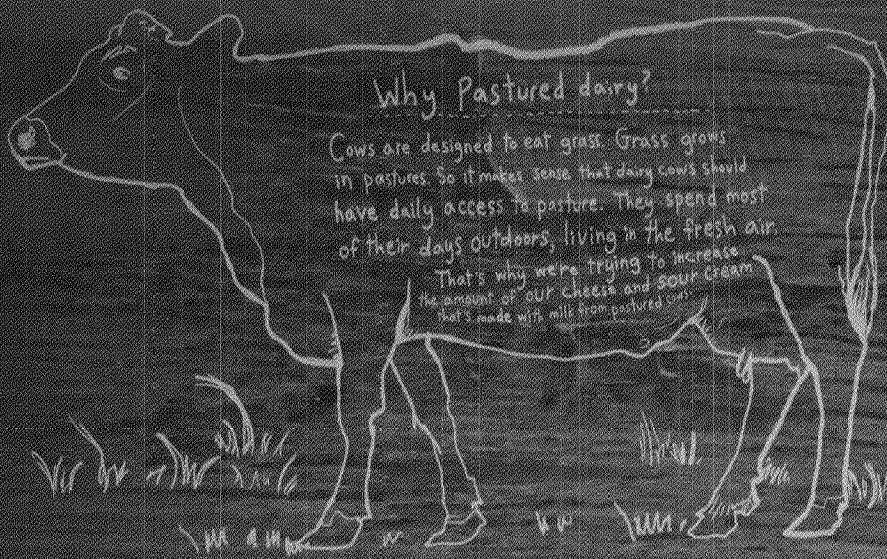 Why Pastured dairy?
Cows are designed to eat grass. Grass grows
in pastures. So it makes sense that dairy cows should
have daily access to pasture. They spend most
of their days outdoors, living in the fresh air.
That's why we're trying to increase
the amount of our cheese and sour cream
that's made with milk from pastured cows.